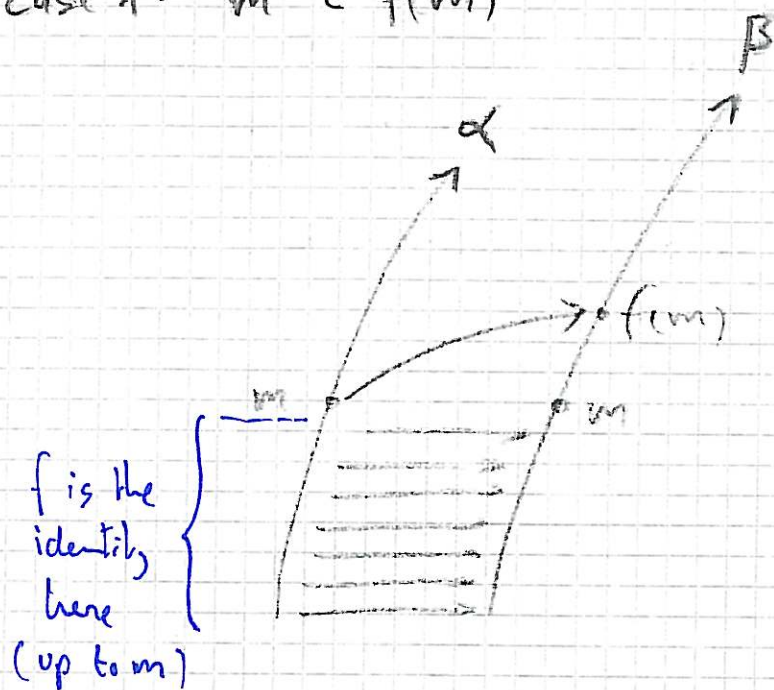 case 1: m ∈ f(m)
β
α
f(m)
m
m
f is the
identity
here
(up to m)